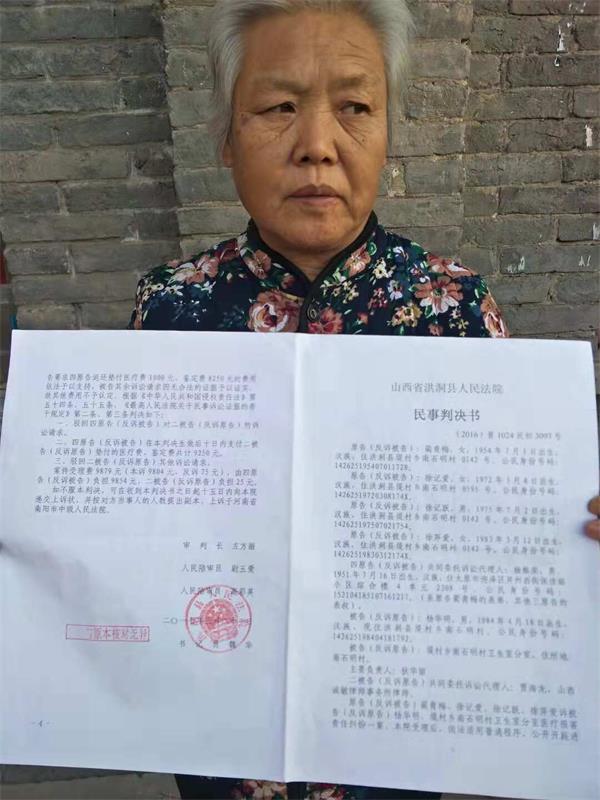 告要求四原告返还垫付医疗费1000元、鉴定费8250元的费用
依法予以支持，被告其余诉讼请求因无合法的证据予以证实，
故其他费用不予认定。根据《中华人民共和国侵权责任法》第
五十四条、五十五条，《最高人民法院关于民事诉讼证据的若
干规定》第二条、第三条判决如下：
一、驳回四原告（反诉被告）对二被告（反诉原告）的诉
讼请求。
二、四原告（反诉被告）在本判决生效后十日内支付二被
告（反诉原告）垫付的医疗费、鉴定费共计9250元。
三、驳回二被告（反诉原告）其他诉讼请求。
案件受理费9879元（本诉9804元，反诉75元），由四原
告（反诉被告）负担9854元，二被告（反诉原告）负担25元。
如不服本判决，可在收到本判决书之日起十五日内向本院
递交上诉状，并按对方当事人的人数提出副本，上诉于河南省
南阳市中级人民法院。
审 判 长 左方丽
人民陪审员 尉玉爱
人民陪审员
二〇一
本件与原本核对无异
书 记 员 魏 华
- 4 -
山西省洪洞县人民法院
民事判决书
（2016）晋1024民初3093号
原告（反诉被告）：蔺青梅，女，1954年7月1日出生，
汉族，住洪洞县堤村乡南石明村0142号。公民身份号码：
原告（反诉被告）：徐记爱，女，1972年3月8日出生，
汉族，住洪洞县堤村乡南石明村0595号。公民身份号码：
原告（反诉被告）：徐记跃，男，1975年7月2日出生，
汉族，住洪洞县堤村乡南石明村0142号。公民身份号码：
142625197507021754。
原告（反诉被告）：徐萍爱，女，1983年3月12日出生，
汉族，住洪洞县堤村乡南石明村0142号。公民身份号码：
四原告（反诉被告）共同委托诉讼代理人：
1951年7月16日出生，汉族，住太原市
小区综合楼4单元2308号。公民身份号码：
被告（反诉原告）：杨华明，男，1984年4月18日出生，
汉族，现住洪洞县堤村乡南石明村。公民身份号码：
142625198404181792。
被告（反诉原告）：堤村乡南石明村卫生室分室。住所地：
南石明村。
主要负责人：狄华丽
二被告（反诉原告）共同委托诉讼代理人：贾海龙，山西
诚敏律师事务所律师。
原告（反诉被告）蔺青梅、徐记爱、徐记跃、徐萍爱诉被
告（反诉原告）杨华明、堤村乡南石明村卫生室分室医疗损害
责任纠纷一案，本院受理后，依法适用普通程序，公开开庭进